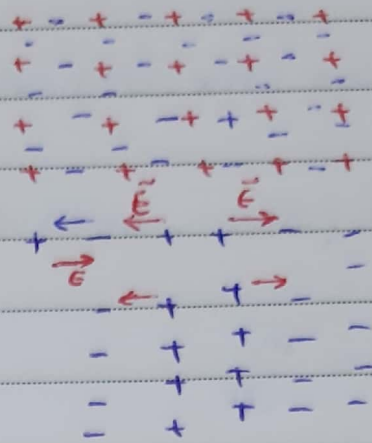 + - + - + - + - +
- - - - -
+ - + - + - + - +
- - - -
+ - + - + + + - +
- - - -
+ - + - + - + - +
← E⃗ ← E⃗ →
+ - + + - -
→ E -
- ← + + → -
- + + - -
+ + - -
- + + - -
- +